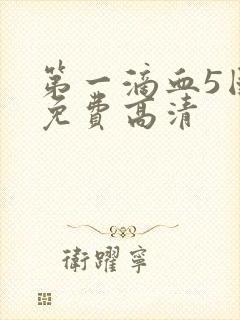 第一滴血5国
免费高清
衛躍寧